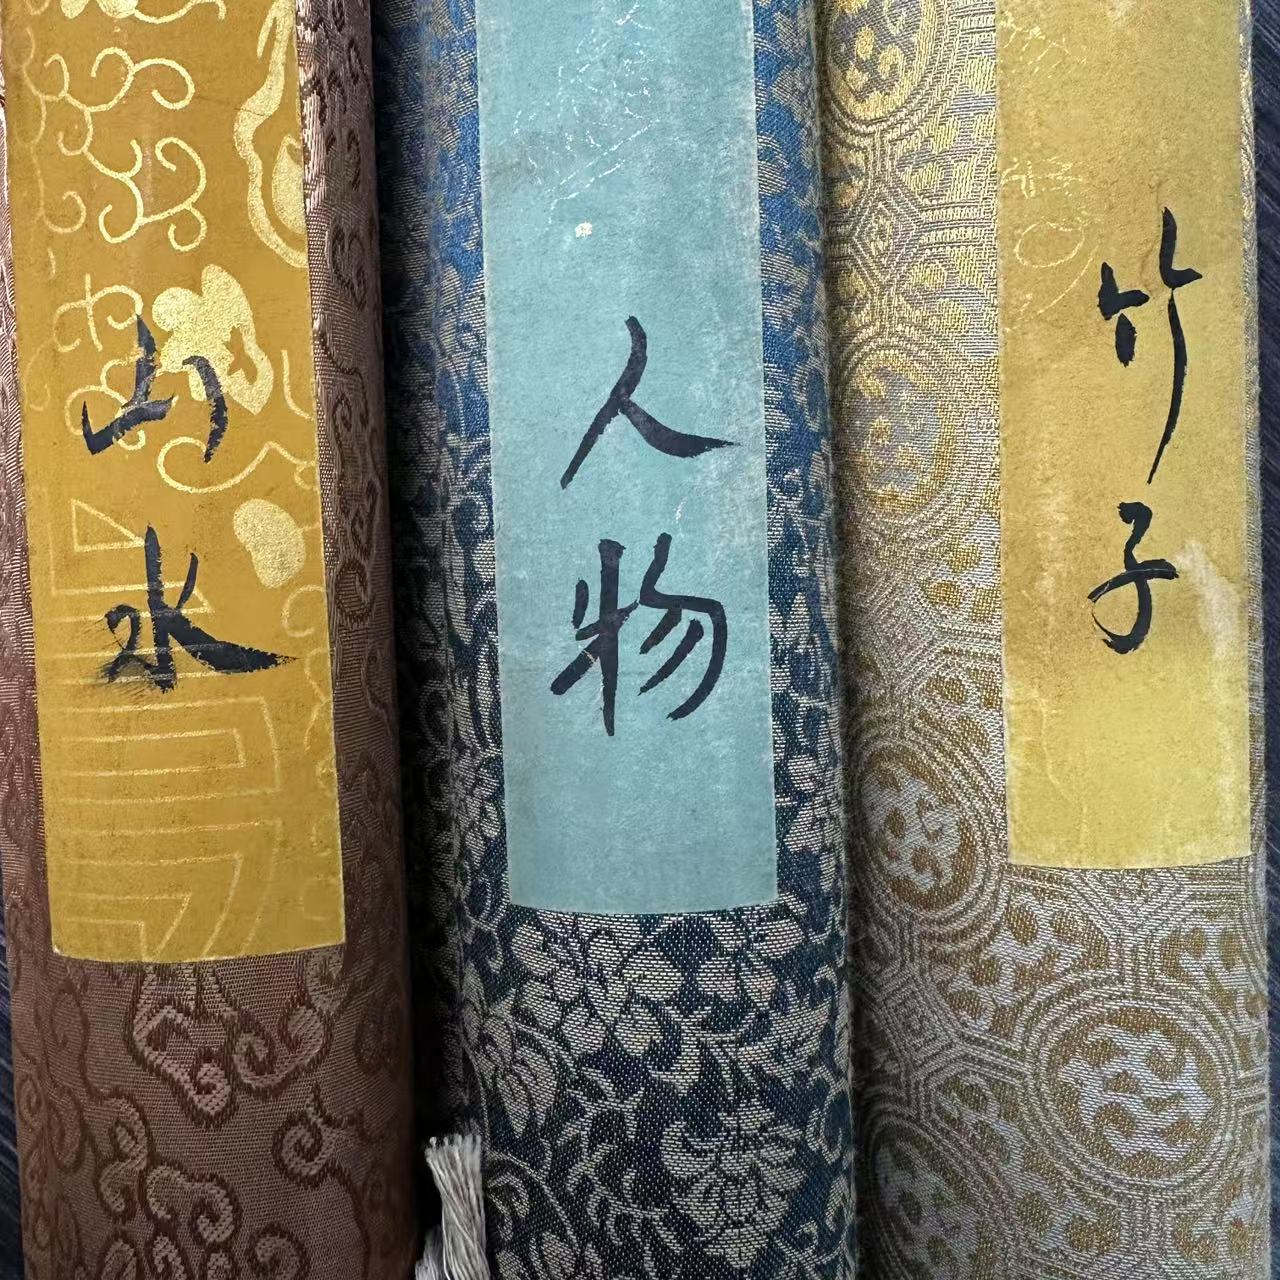 山水
人物
竹子